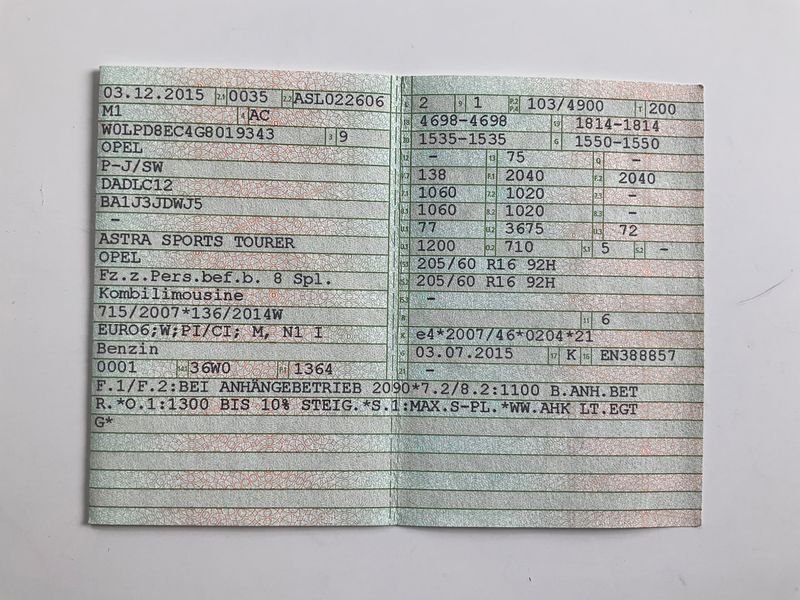 03.12.2015 0035 ASL022606
M1 AC
W0LPD8EC4G8019343 9
OPEL
P-J/SW
DADLC12
BA1J3JDWJ5
-
ASTRA SPORTS TOURER
OPEL
Fz.z.Pers.bef.b. 8 Spl.
Kombilimousine
715/2007*136/2014W
EURO6;W;PI/CI; M, N1 I
Benzin
0001 36W0 1364
2 1 103/4900 200
4698-4698 1814-1814
1535-1535 1550-1550
- 75 -
138 2040 2040
1060 1020 -
1060 1020 -
77 3675 72
1200 710 5 -
205/60 R16 92H
205/60 R16 92H
-
6
e4*2007/46*0204*21
03.07.2015 K EN388857
-
F.1/F.2:BEI ANHÄNGEBETRIEB 2090*7.2/8.2:1100 B.ANH.BET
R.*O.1:1300 BIS 10% STEIG.*S.1:MAX.S-PL.*WW.AHK LT.EGT
G*